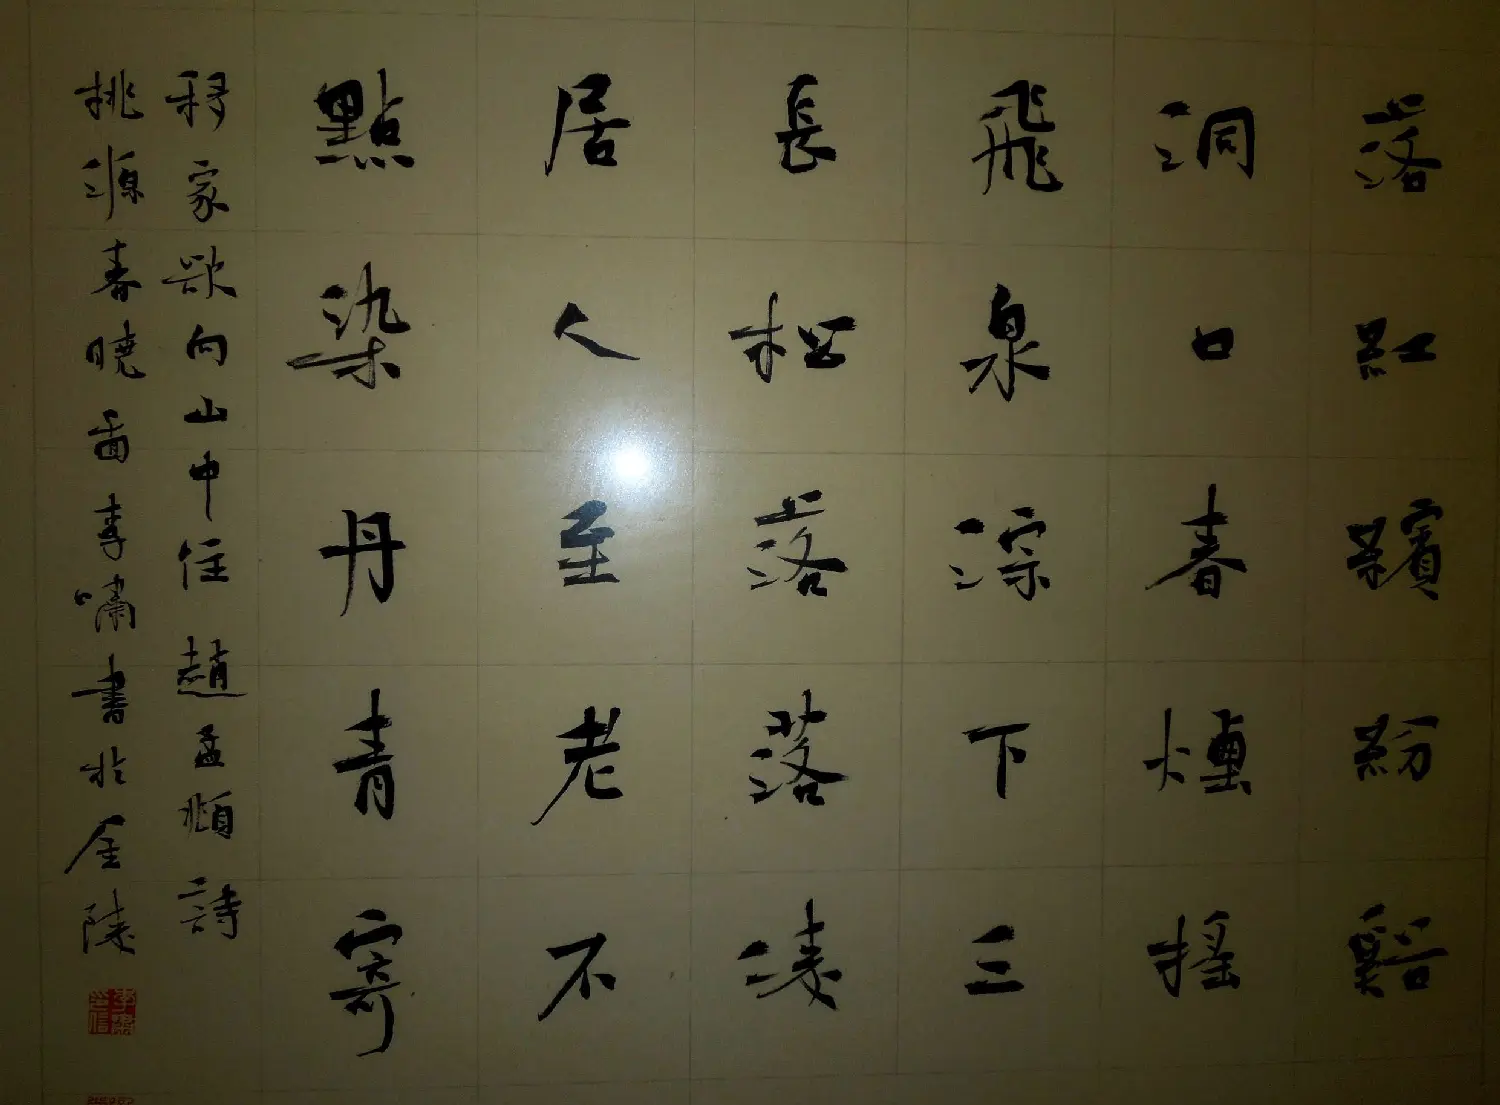 落紅繽紛谿
洞口春煙搖
飛泉淙下三
長松落落凌
居人至老不
點染丹青寄
移家欲向山中住趙孟頫詩
桃源春曉啚李嘯書於金陵